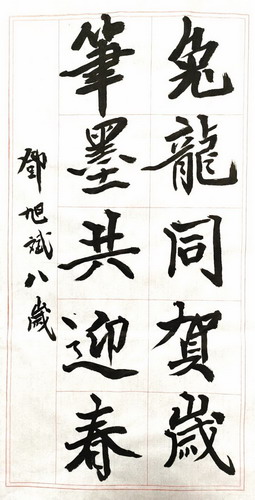 兔龍同賀歲
筆墨共迎春
鄧旭斌八歲